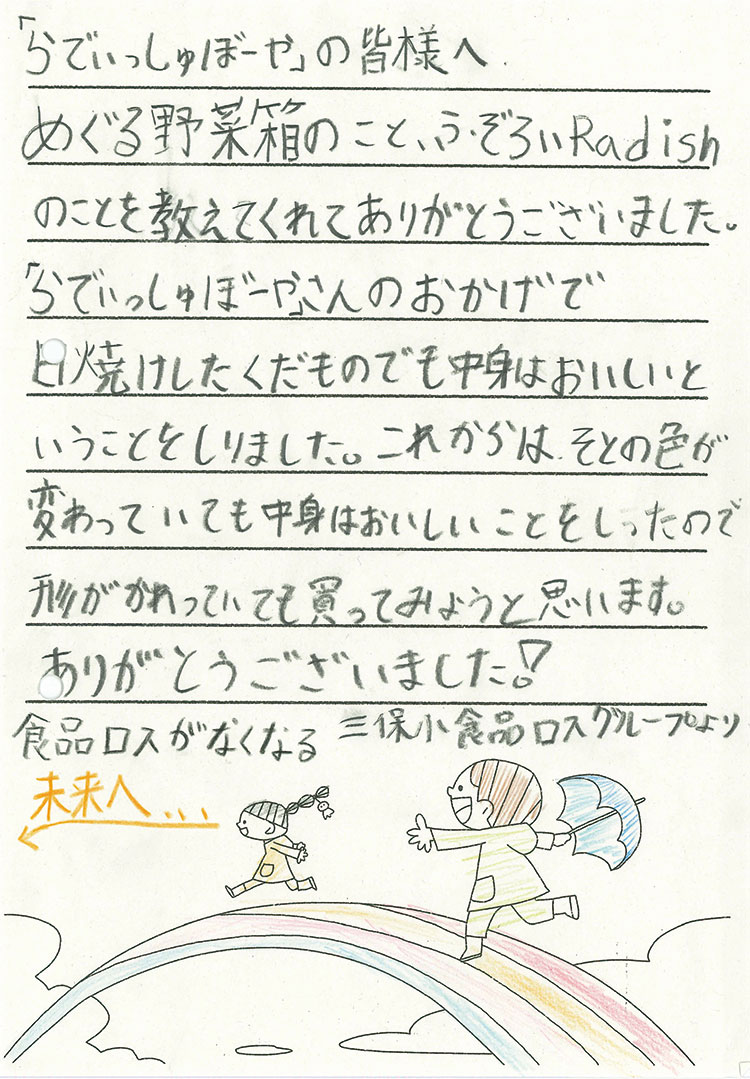 「らでぃっしゅぼーや」の皆様へ
めぐる野菜箱のこと、ふぞろいRadish
のことを教えてくれてありがとうございました。
「らでぃっしゅぼーや」さんのおかげで
日焼けしたくだものでも中身はおいしいと
いうことをしりました。これからは、そとの色が
変わっていても中身はおいしいことをしったので
形がかわっていても買ってみようと思います。
ありがとうございました！
三保小食品ロスグループより
食品ロスがなくなる
未来へ...